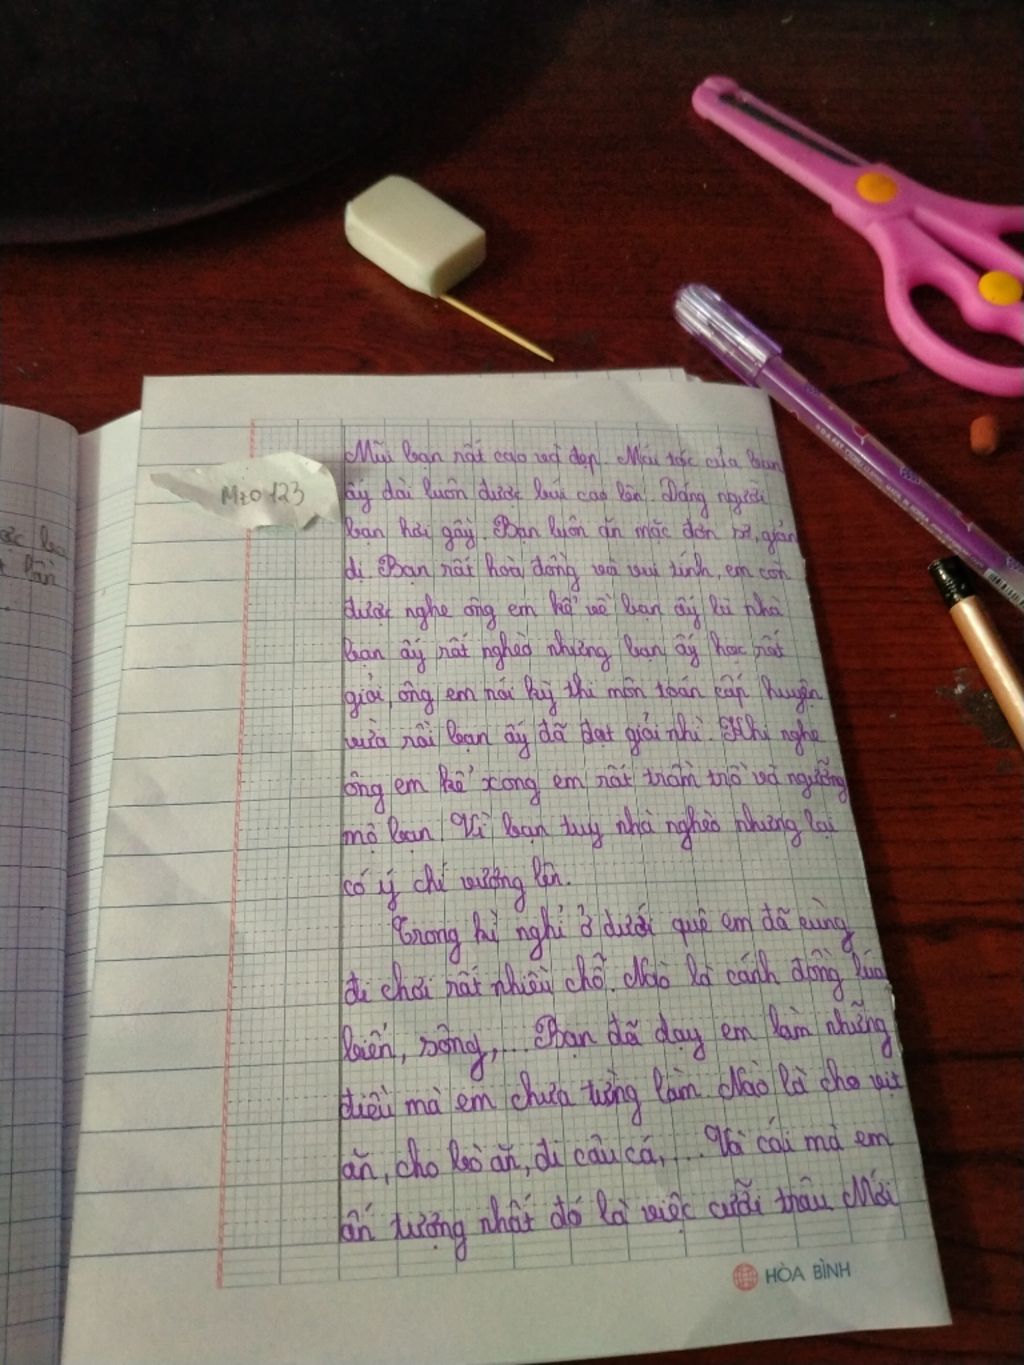 Mũi bạn rất cao và đẹp. Mái tóc của bạn
ấy dài luôn được búi cao lên. Dáng người
bạn hơi gầy. Bạn luôn ăn mặc đơn sơ, giản
dị. Bạn rất hoà đồng và vui tính, em còn
được nghe ông em kể về bạn ấy là nhà
bạn ấy rất nghèo nhưng bạn ấy học rất
giỏi, ông em nói kỳ thi môn toán cấp huyện
vừa rồi bạn ấy đã đạt giải nhì. Khi nghe
ông em kể xong em rất trầm trồ và ngưỡng
mộ bạn. Vì bạn tuy nhà nghèo nhưng lại
có ý chí vương lên.
Trong kì nghỉ ở dưới quê em đã cùng
đi chơi rất nhiều chỗ. Nào là cánh đồng lúa
biển, sông,... Bạn đã dạy em làm những
điều mà em chưa từng làm. Nào là cho vịt
ăn, cho bò ăn, đi câu cá,... Và cái mà em
ấn tượng nhất đó là việc cưỡi trâu. Mới
HÒA BÌNH